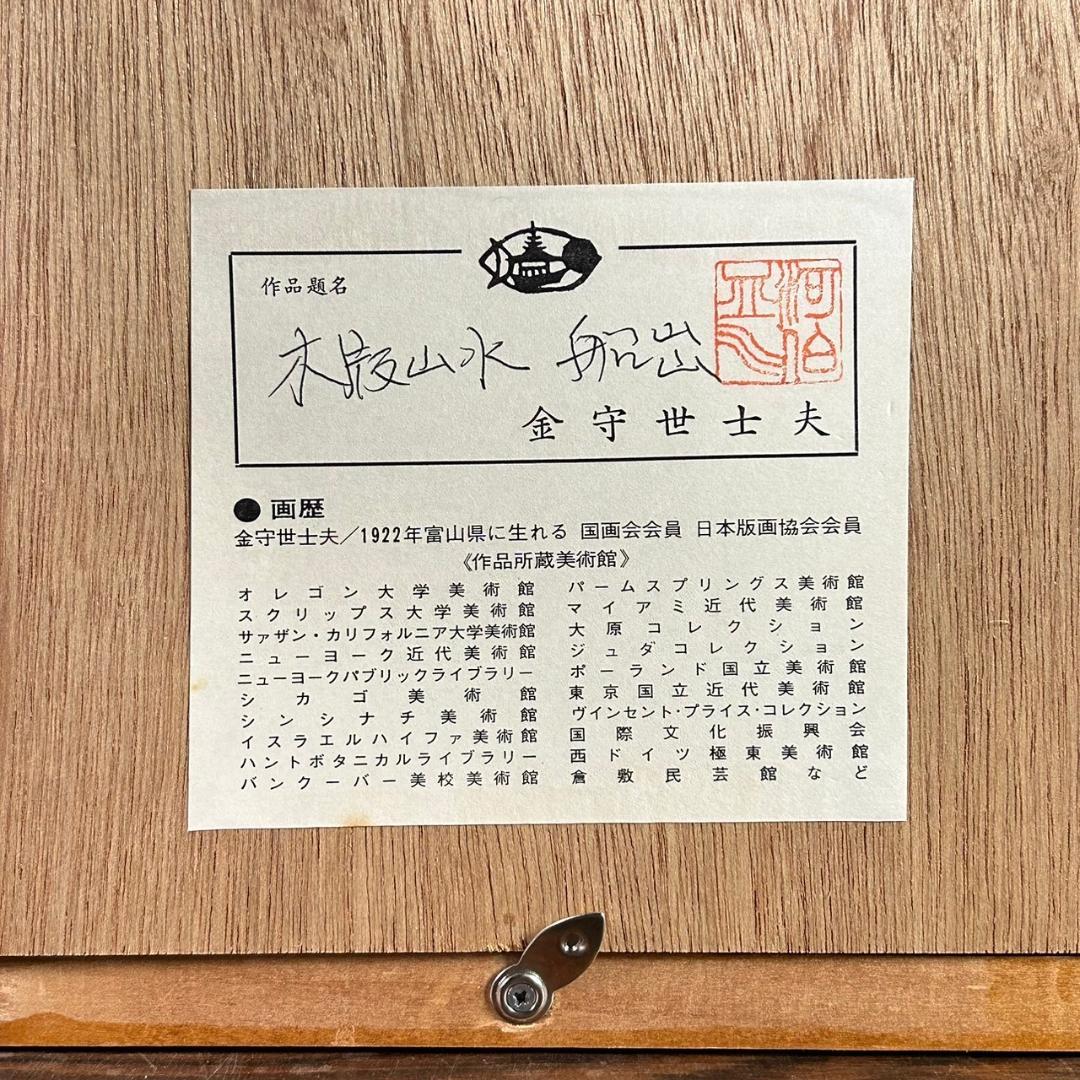 作品題名
木版山水 船出
金守世士夫
● 画歴
金守世士夫/1922年富山県に生れる 国画会会員 日本版画協会会員
《作品所蔵美術館》
オレゴン大学美術館
スクリップス大学美術館
サァザン・カリフォルニア大学美術館
ニューヨーク近代美術館
ニューヨークパブリックライブラリー
シカゴ美術館
シンシナチ美術館
イスラエルハイファ美術館
ハントボタニカルライブラリー
バンクーバー美校美術館
パームスプリングス美術館
マイアミ近代美術館
大原コレクション
ジュダコレクション
ポーランド国立美術館
東京国立近代美術館
ヴインセント・プライス・コレクション
国際文化振興会
西ドイツ極東美術館
倉敷民芸館など